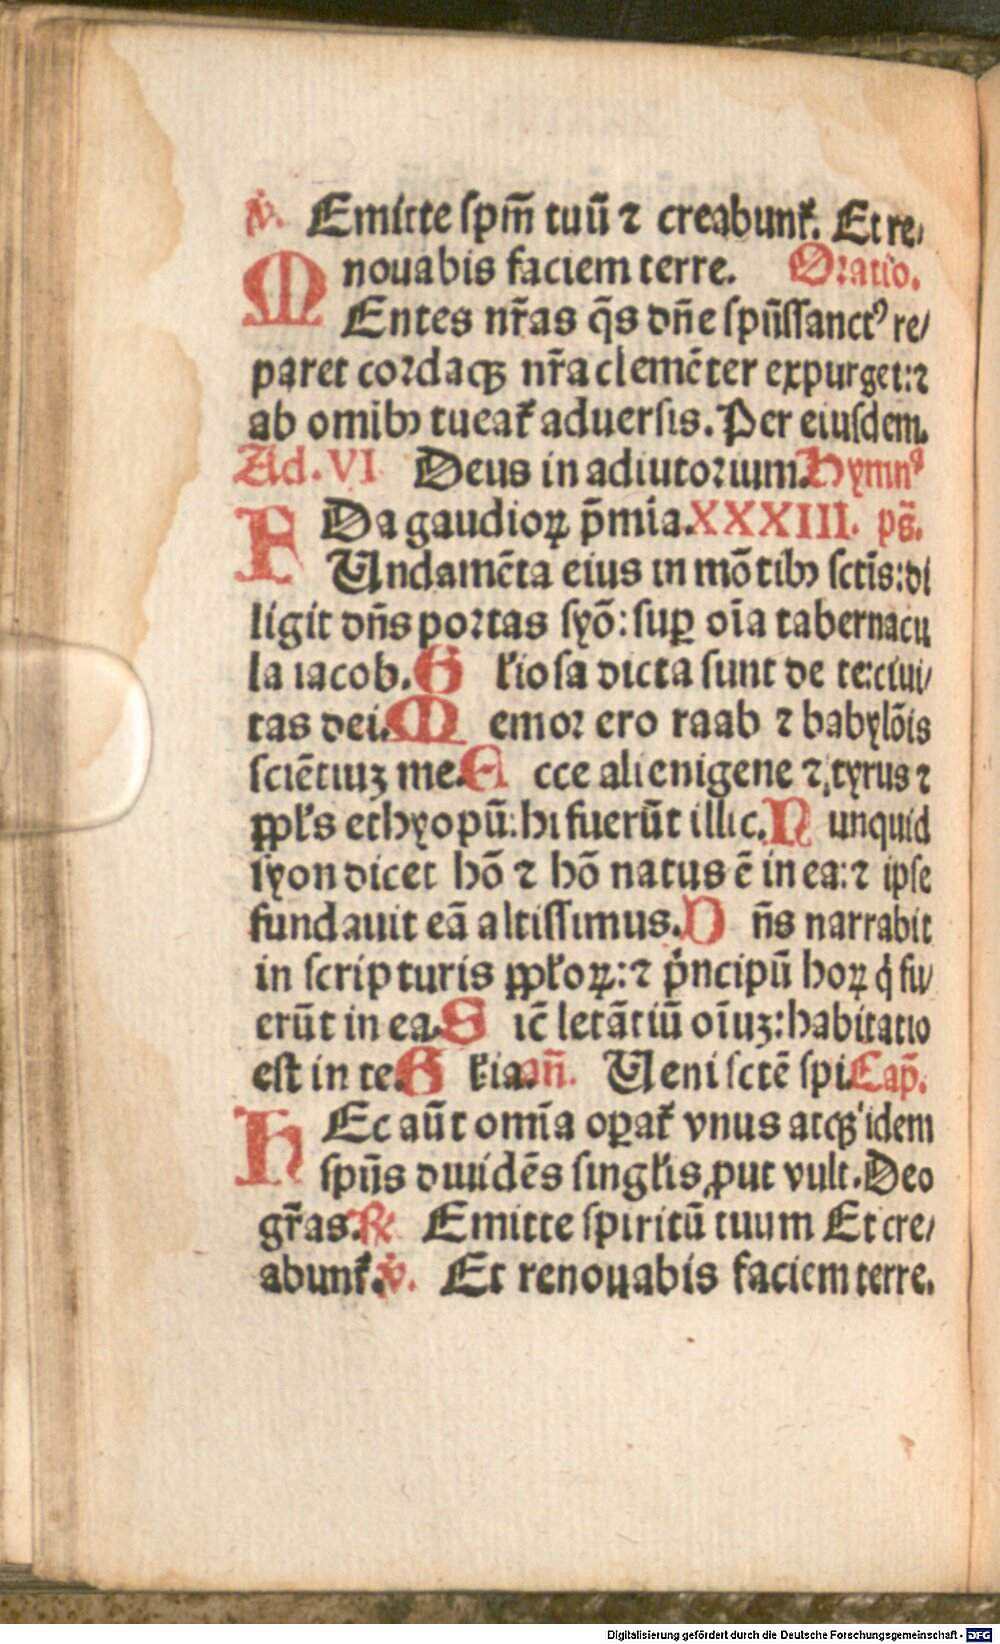 v̄. Emitte spm̄ tuū ⁊ creabunt̄. Et re⸗
nouabis faciem terre. Oratio.
MEntes nr̄as q̄s dn̄e spūssanctꝰ re/
paret cordaqꝫ nr̄a clemēter expurget:⁊
ab omibꝫ tueat̄ aduersis. Per eiusdem.
Ad. VI Deus in adiutorium. Hymnꝰ
Da gaudioꝝ p̄mia. XXXIII. ps̄.
FUndamēta eius in mōtibꝫ sctīs: di
ligit dn̄s portas syō: suꝑ oīa tabernacu
la iacob. G łiosa dicta sunt de te: ciui/
tas dei. M emor ero raab ⁊ babylōis
sciētiuꝫ me. E cce alienigene ⁊ tyrus ⁊
ppłs ethyopū: hi fuerūt illic. N unquid
syon dicet hō ⁊ hō natus ē in ea: ⁊ ipse
fundauit eā altissimus. D n̄s narrabit
in scripturis ppłoꝝ: ⁊ p̄ncipū hoꝝ q̇ fu/
erūt in ea. S ic̄ letātiū oīuꝫ: habitatio
est in te. G łia. an̄. Ueni sctē spi. Cap̄.
HEc aūt omīa oꝑat̄ vnus atqꝫ idem
spūs diuidēs singłis ꝓut vult. Deo
gr̄as. ℟ Emitte spiritū tuum Et cre/
abunt̄. v̄. Et renouabis faciem terre.
Digitalisierung gefördert durch die Deutsche Forschungsgemeinschaft - DFG